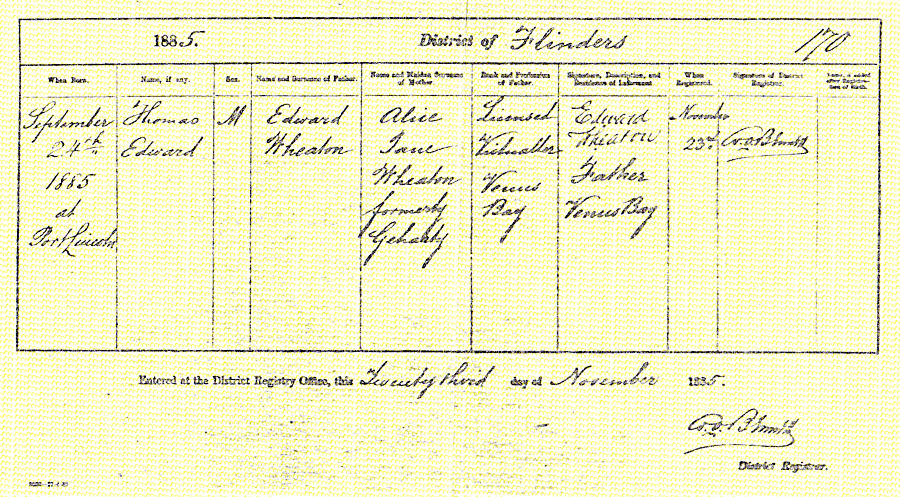 1885. District of Flinders 170
When Born. Name, if any. Sex. Name and Surname of Father. Name and Maiden Surname of Mother. Rank and Profession of Father. Signature, Description, and Residence of Informant When Registered. Signature of District Registrar. Name, if added after Registration of Birth.
September Thomas M Edward Alice Licensed Edward November
24th Edward Wheaton Jane Victualler Wheaton 23rd
1885 Wheaton Venus Father
at formerly Bay Venus Bay
Port Lincoln
Entered at the District Registry Office, this Twenty third day of November 1885.
District Registrar.